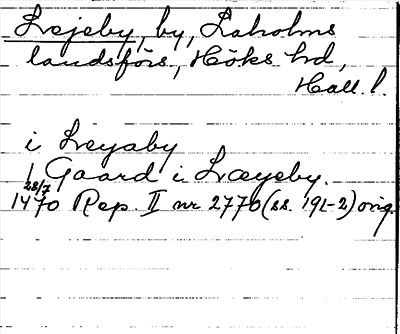 Lejeby, by, Laholms
landsförs, Höks hd,
Hall l.
i Leyaby
1 Gaard i Læyeby.
28/7
1470 Rep. II nr 2770 (ss. 191-2) orig.